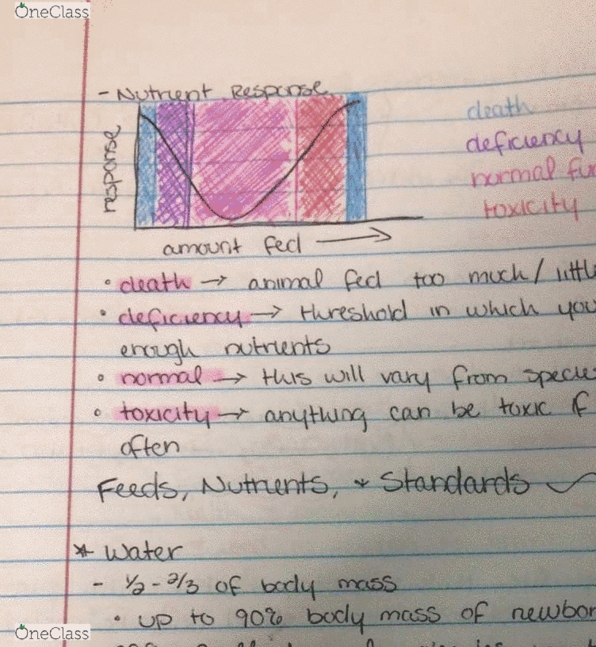 OneClass
- Nutrient Response
death
deficiency
normal fun
toxicity
response
amount fed →
• death → animal fed too much / little
• deficiency → threshold in which you
enough nutrients
• normal → this will vary from specie
• toxicity → anything can be toxic if
often
Feeds, Nutrients, + Standards
* Water
- 1/2 - 2/3 of body mass
• up to 90% body mass of newbor
OneClass